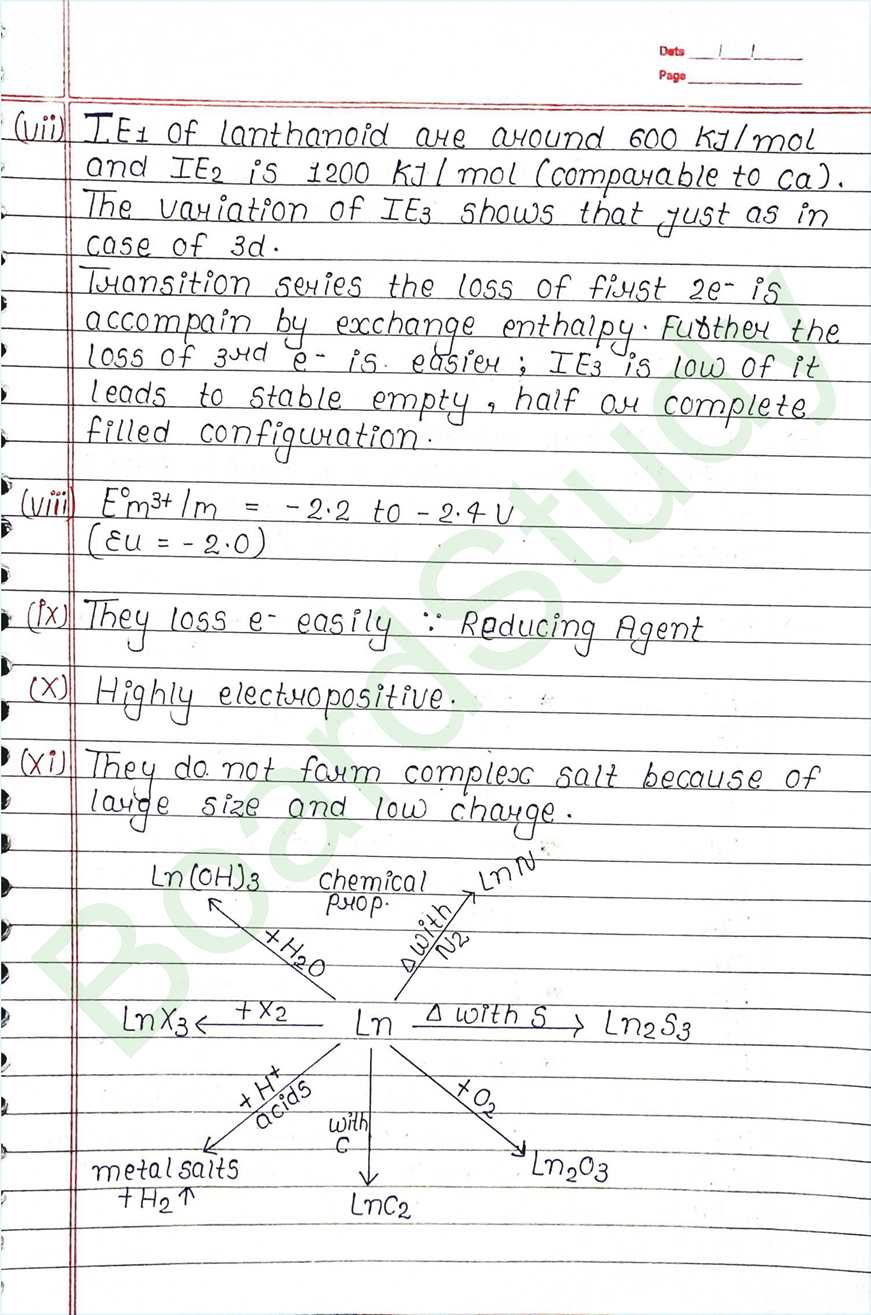 Date / /
Page
(vii) I.E1 of lanthanoid are around 600 KJ/mol
and IE2 is 1200 KJ/mol (comparable to ca).
The variation of IE3 shows that just as in
case of 3d.
Transition series the loss of first 2e- is
accompain by exchange enthalpy. Further the
loss of 3rd e- is. easier ; IE3 is low of it
leads to stable empty, half or complete
filled configuration.
(viii) E°m3+/m = -2.2 to -2.4 V
(Eu = -2.0)
(ix) They loss e- easily ∵ Reducing Agent
(x) Highly electropositive.
(xi) They do not form complex salt because of
large size and low charge.
Ln(OH)3 chemical prop. LnN
+H2O Δ with N2
LnX3 ← +X2 Ln Δ with S → Ln2S3
+H+ acids with C +O2
metal salts +H2↑ LnC2 Ln2O3
BoardStudy